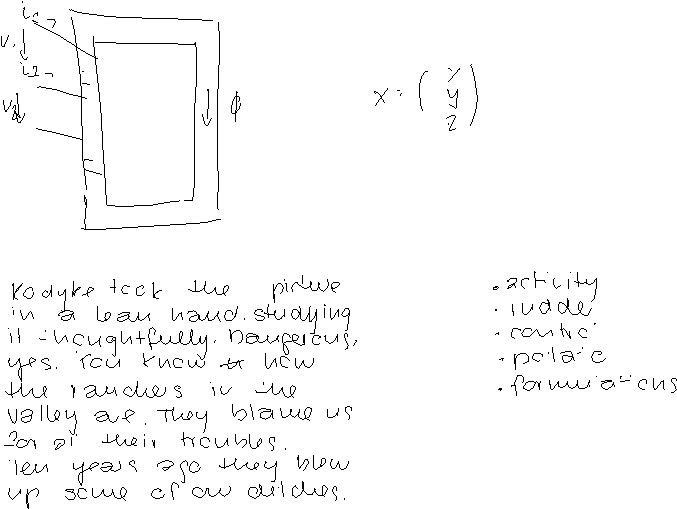 i₁
v₁
i₂
v₂
ϕ
x = ( x
y
z )
Kodyke took the picture
in a lean hand. studying
it thoughtfully. Dangerous,
yes. You know how
the ranchers in the
valley are. They blame us
for all their troubles.
Ten years ago they blew
up some of our ditches.
• activity
• contic
• formulations